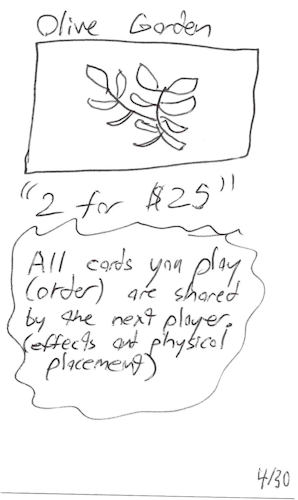 Olive Gorden
"2 for $25"
All cards you play
(order) are shared
by the next player.
(effects and physical
placement)
4/30